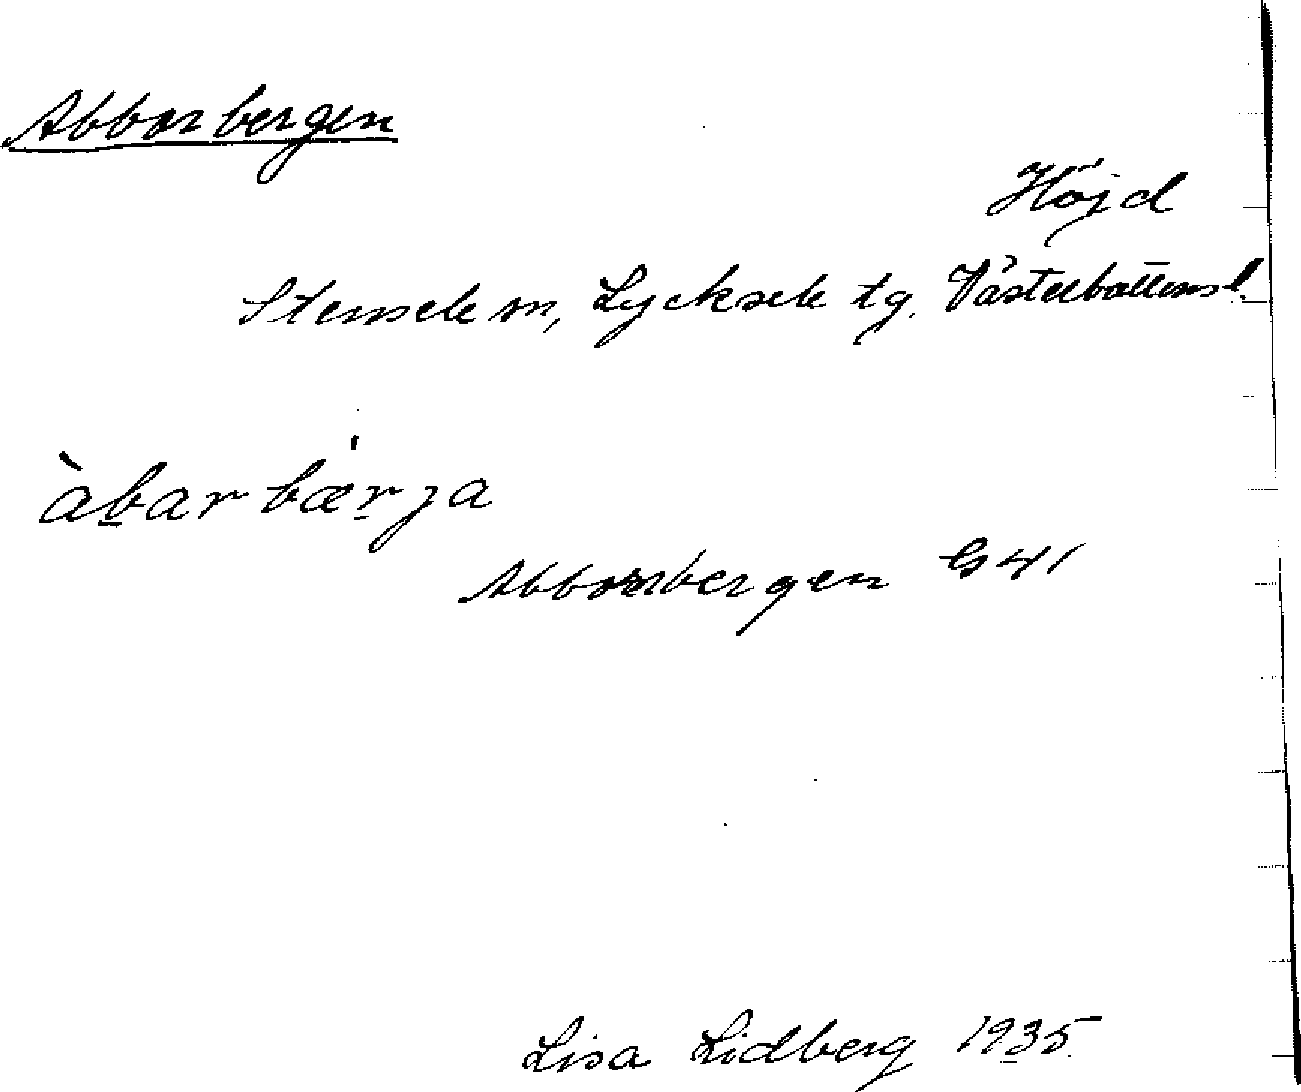 Abborbergen
Höjd
Stensele sn, Lycksele tg. Västerbottens l.
àbarbærja
Abborrbergen G 41
Lisa Lidberg 1935